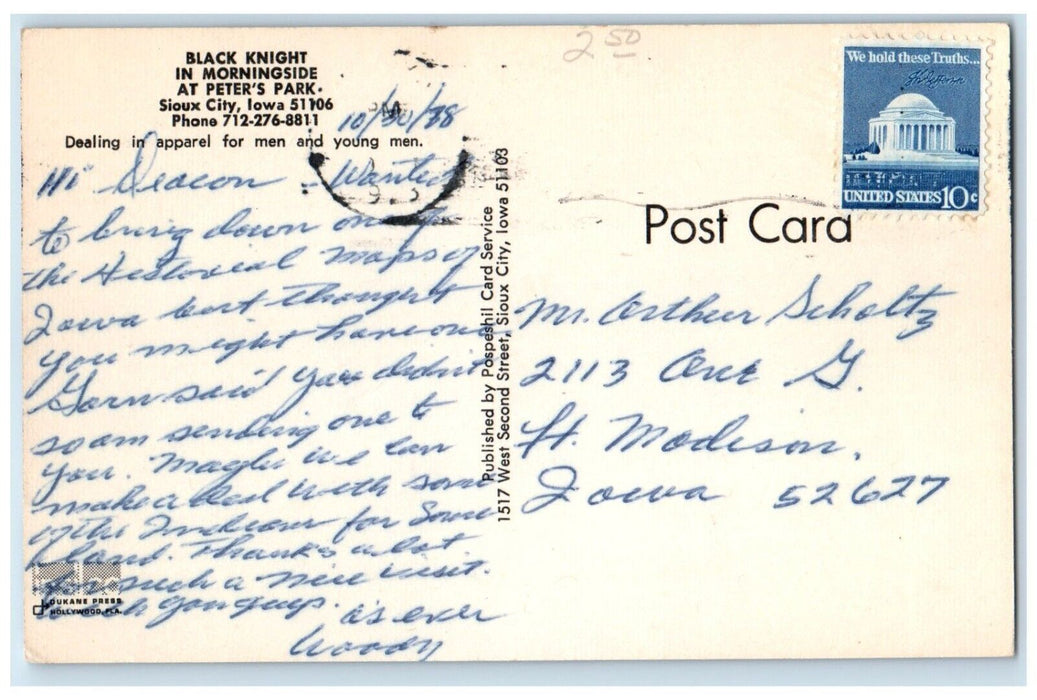 BLACK KNIGHT
IN MORNINGSIDE
AT PETER'S PARK
Sioux City, Iowa 51106
Phone 712-276-8811
Dealing in apparel for men and young men.
2 50
We hold these Truths...
UNITED STATES 10c
Post Card
PM
10/30/78
Hi Deacon - Wanted
to bring down one of
the Historical maps of
Iowa but thought
you might have one
said you didn't
so am sending one to
you. Maybe we can
make a deal with some
of the Indians for some
land. Thanks a lot
for such a nice visit.
as ever
Woody
DUKANE PRESS
HOLLYWOOD, FLA.
Published by Pospeshil Card Service
1517 West Second Street, Sioux City, Iowa 51103
Mr. Arthur Scholtz
2113 Ave G.
Ft. Madison,
Iowa 52627